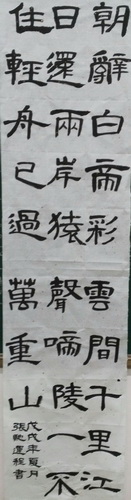 朝辭白帝彩雲間千里江
日還兩岸猿聲啼陵一不
住輕舟已過萬重山
戊戌年夏月